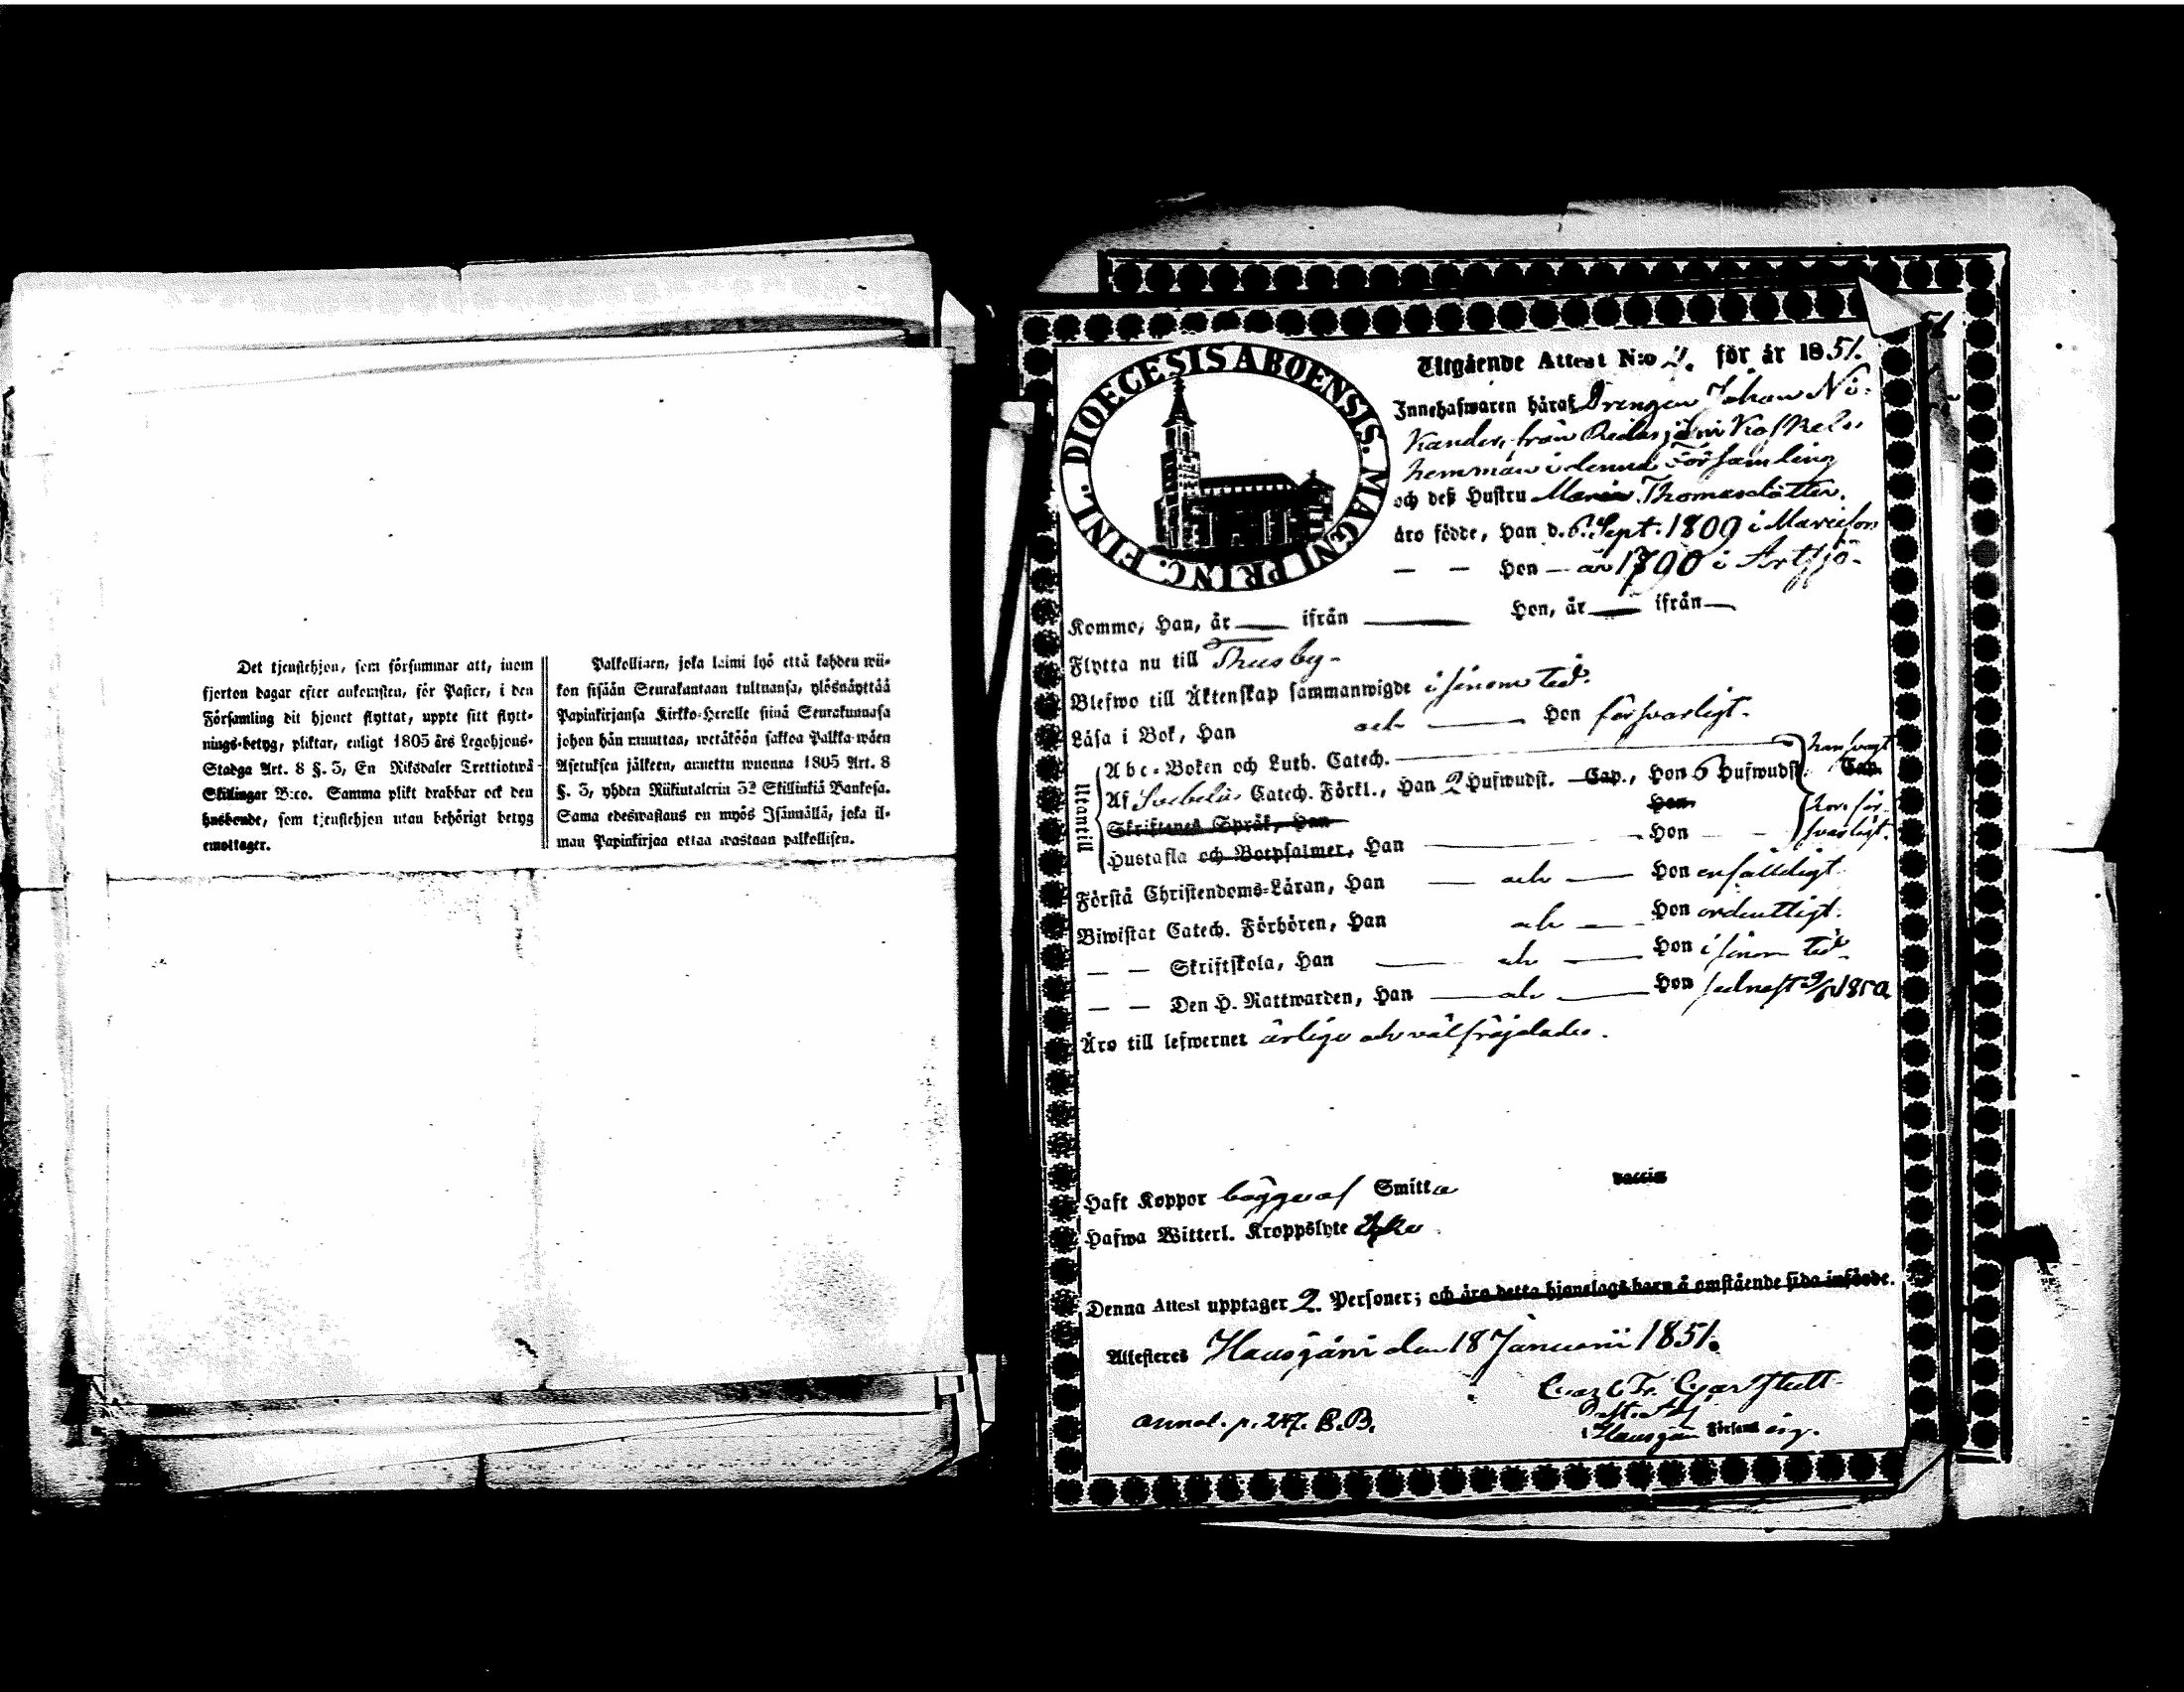 Det tjenstehjon, som försummar att, inom
fjorton dagar efter ankomsten, för Pastor, i den
Församling dit hjonet flyttat, uppte sitt flytt-
nings-betyg, pliktar, enligt 1805 års Legohjons-
Stadga Art. 8 §. 3, En Riksdaler Trettiotwå
Skillingar B:co. Samma plikt drabbar ock den
husbonde, som tjenstehjon utan behörigt betyg
emottager.
Palkollinen, joka laimi lyö että kahden wii-
kon sisään Seurakuntaan tultuansa, ylösnäyttää
Papinkirjansa Kirkko-Herralle siinä Seurakunnasa
johon hän muuttaa, wetäköön sakkoa Palkka-wäen
Asetuksen jälkeen, annettu wuonna 1805 Art. 8
§. 3, yhden Riikintalerin 32 Skillinkiä Bankosa.
Sama edeswastaus on myös Isännällä, joka il-
man Papinkirjaa ottaa wastaan palkollisen.
DIOECESIS ABOENSIS. MAGNI PRINC. FINL.
Utgående Attest N:o 2. för år 1851.
51
Innehafwaren häraf Drengen Johan Ni-
kander, från
hemman i denna Församling
och deß Hustru Maria Thomasdotter.
äro födde, Han d. 6 Sept. 1809 i
— — Hon — år 1790 i Artsjö-
Kommo, Han, år — ifrån — Hon, år — ifrån —
Flytta nu till Thusby-
Blefwo till Äktenskap sammanwigde i sinom tid.
Läsa i Bok, Han och — Hon försvarligt.
Utantill
Abc-Boken och Luth. Catech. — han svagt
Af Svebelii Catech. Förkl., Han 2 Hufwudst. Cap., Hon 6 Hufwudst. Cap.
Skriftenes Språk, Han Hon hon för-
Hustafla och Botpsalmer, Han — Hon — svarligt.
Förstå Christendoms-Läran, Han — och — Hon enfaldigt.
Biwistat Catech. Förhören, Han och — Hon ordentligt.
— — Skriftskola, Han — och — Hon i sinom tid
— — Den H. Nattwarden, Han — och — Hon sednast 1850
Äro till lefwernet ärlige och välfräjdade.
Haft Koppor bägge af Smitta vaccin
Hafwa Witterl. Kroppslyte Icke
Denna Attest upptager 2. Personer; och äro detta hjonelags barn å omstående sida införde.
Attesteres Hausjärvi den 18 Januarii 1851.
annot. p. 247. B.B.
i Hausjärvi Församling.